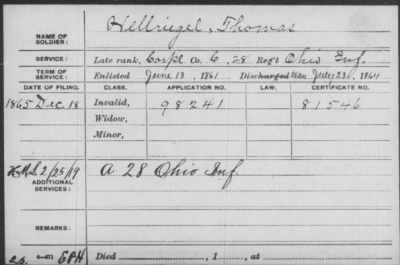 NAME OF SOLDIER: Hellriegel, Thomas
SERVICE: Late rank, Corpl Co. C, 28 Reg't Ohio Inf.
TERM OF SERVICE: Enlisted June 13, 1861 Discharged July 23, 1864
DATE OF FILING. CLASS. APPLICATION NO. LAW. CERTIFICATE NO.
1865 Dec. 18 Invalid, 98241 81546
Widow,
Minor,
2/25/19 A 28 Ohio Inf.
ADDITIONAL SERVICES:
REMARKS:
Died , 1 , at